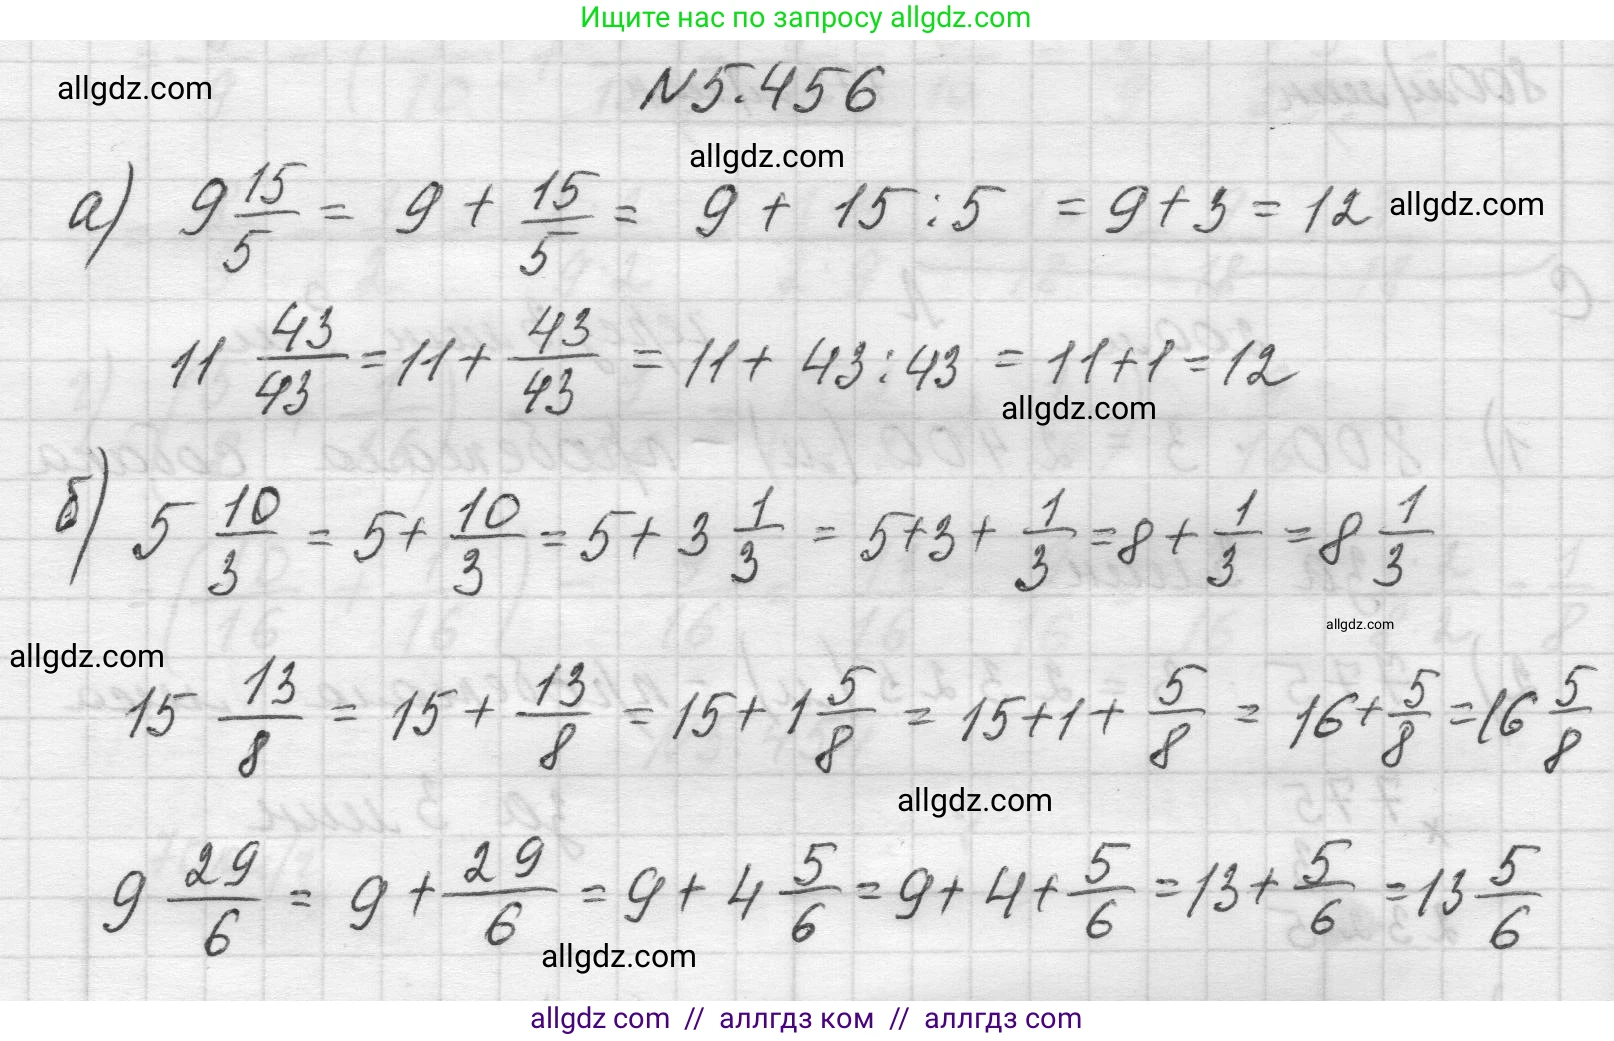 Ищите нас по запросу allgdz.com
allgdz.com
№5.456
allgdz.com
а) 9 15/5 = 9 + 15/5 = 9 + 15 : 5 = 9 + 3 = 12 allgdz.com
11 43/43 = 11 + 43/43 = 11 + 43 : 43 = 11 + 1 = 12
allgdz.com
б) 5 10/3 = 5 + 10/3 = 5 + 3 1/3 = 5 + 3 + 1/3 = 8 + 1/3 = 8 1/3
allgdz.com
allgdz.com
15 13/8 = 15 + 13/8 = 15 + 1 5/8 = 15 + 1 + 5/8 = 16 + 5/8 = 16 5/8
allgdz.com
9 29/6 = 9 + 29/6 = 9 + 4 5/6 = 9 + 4 + 5/6 = 13 + 5/6 = 13 5/6
allgdz.com
allgdz com // аллгдз ком // аллгдз com